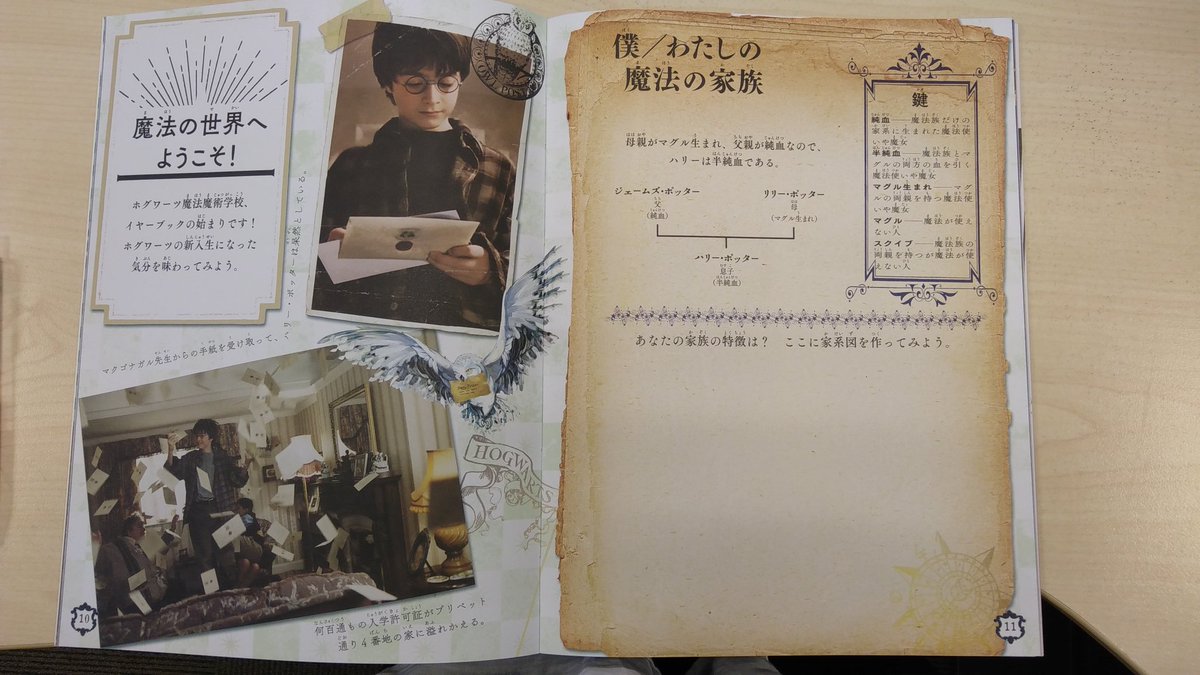 魔法の世界へ
ようこそ！
ホグワーツ魔法魔術学校、
イヤーブックの始まりです！
ホグワーツの新入生になった
気分を味わってみよう。
OWL POST
マクゴナガル先生からの手紙を受け取って、ハリー・ポッターは呆然としている。
HOGWARTS
何百通もの入学許可証がプリベット
通り4番地の家に溢れかえる。
10
僕／わたしの
魔法の家族
母親がマグル生まれ、父親が純血なので、
ハリーは半純血である。
ジェームズ・ポッター
父
（純血）
リリー・ポッター
母
（マグル生まれ）
ハリー・ポッター
息子
（半純血）
鍵
純血――魔法族だけの
家系に生まれた魔法使
いや魔女
半純血――魔法族とマ
グルの両方の血を引く
魔法使いや魔女
マグル生まれ――マグ
ルの両親を持つ魔法使
いや魔女
マグル――魔法が使え
ない人
スクイブ――魔法族の
両親を持つが魔法が使
えない人
あなたの家族の特徴は？　ここに家系図を作ってみよう。
11